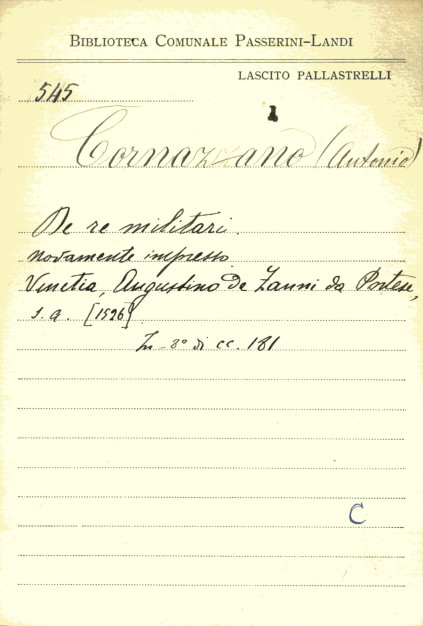 BIBLIOTECA COMUNALE PASSERINI-LANDI
LASCITO PALLASTRELLI
545
1
Cornazzano (Antonio)
De re militari.
novamente impresso
Venetia, Augustino de Zanni da Portese,
s. a. [1526]
In 8º di cc. 181
C